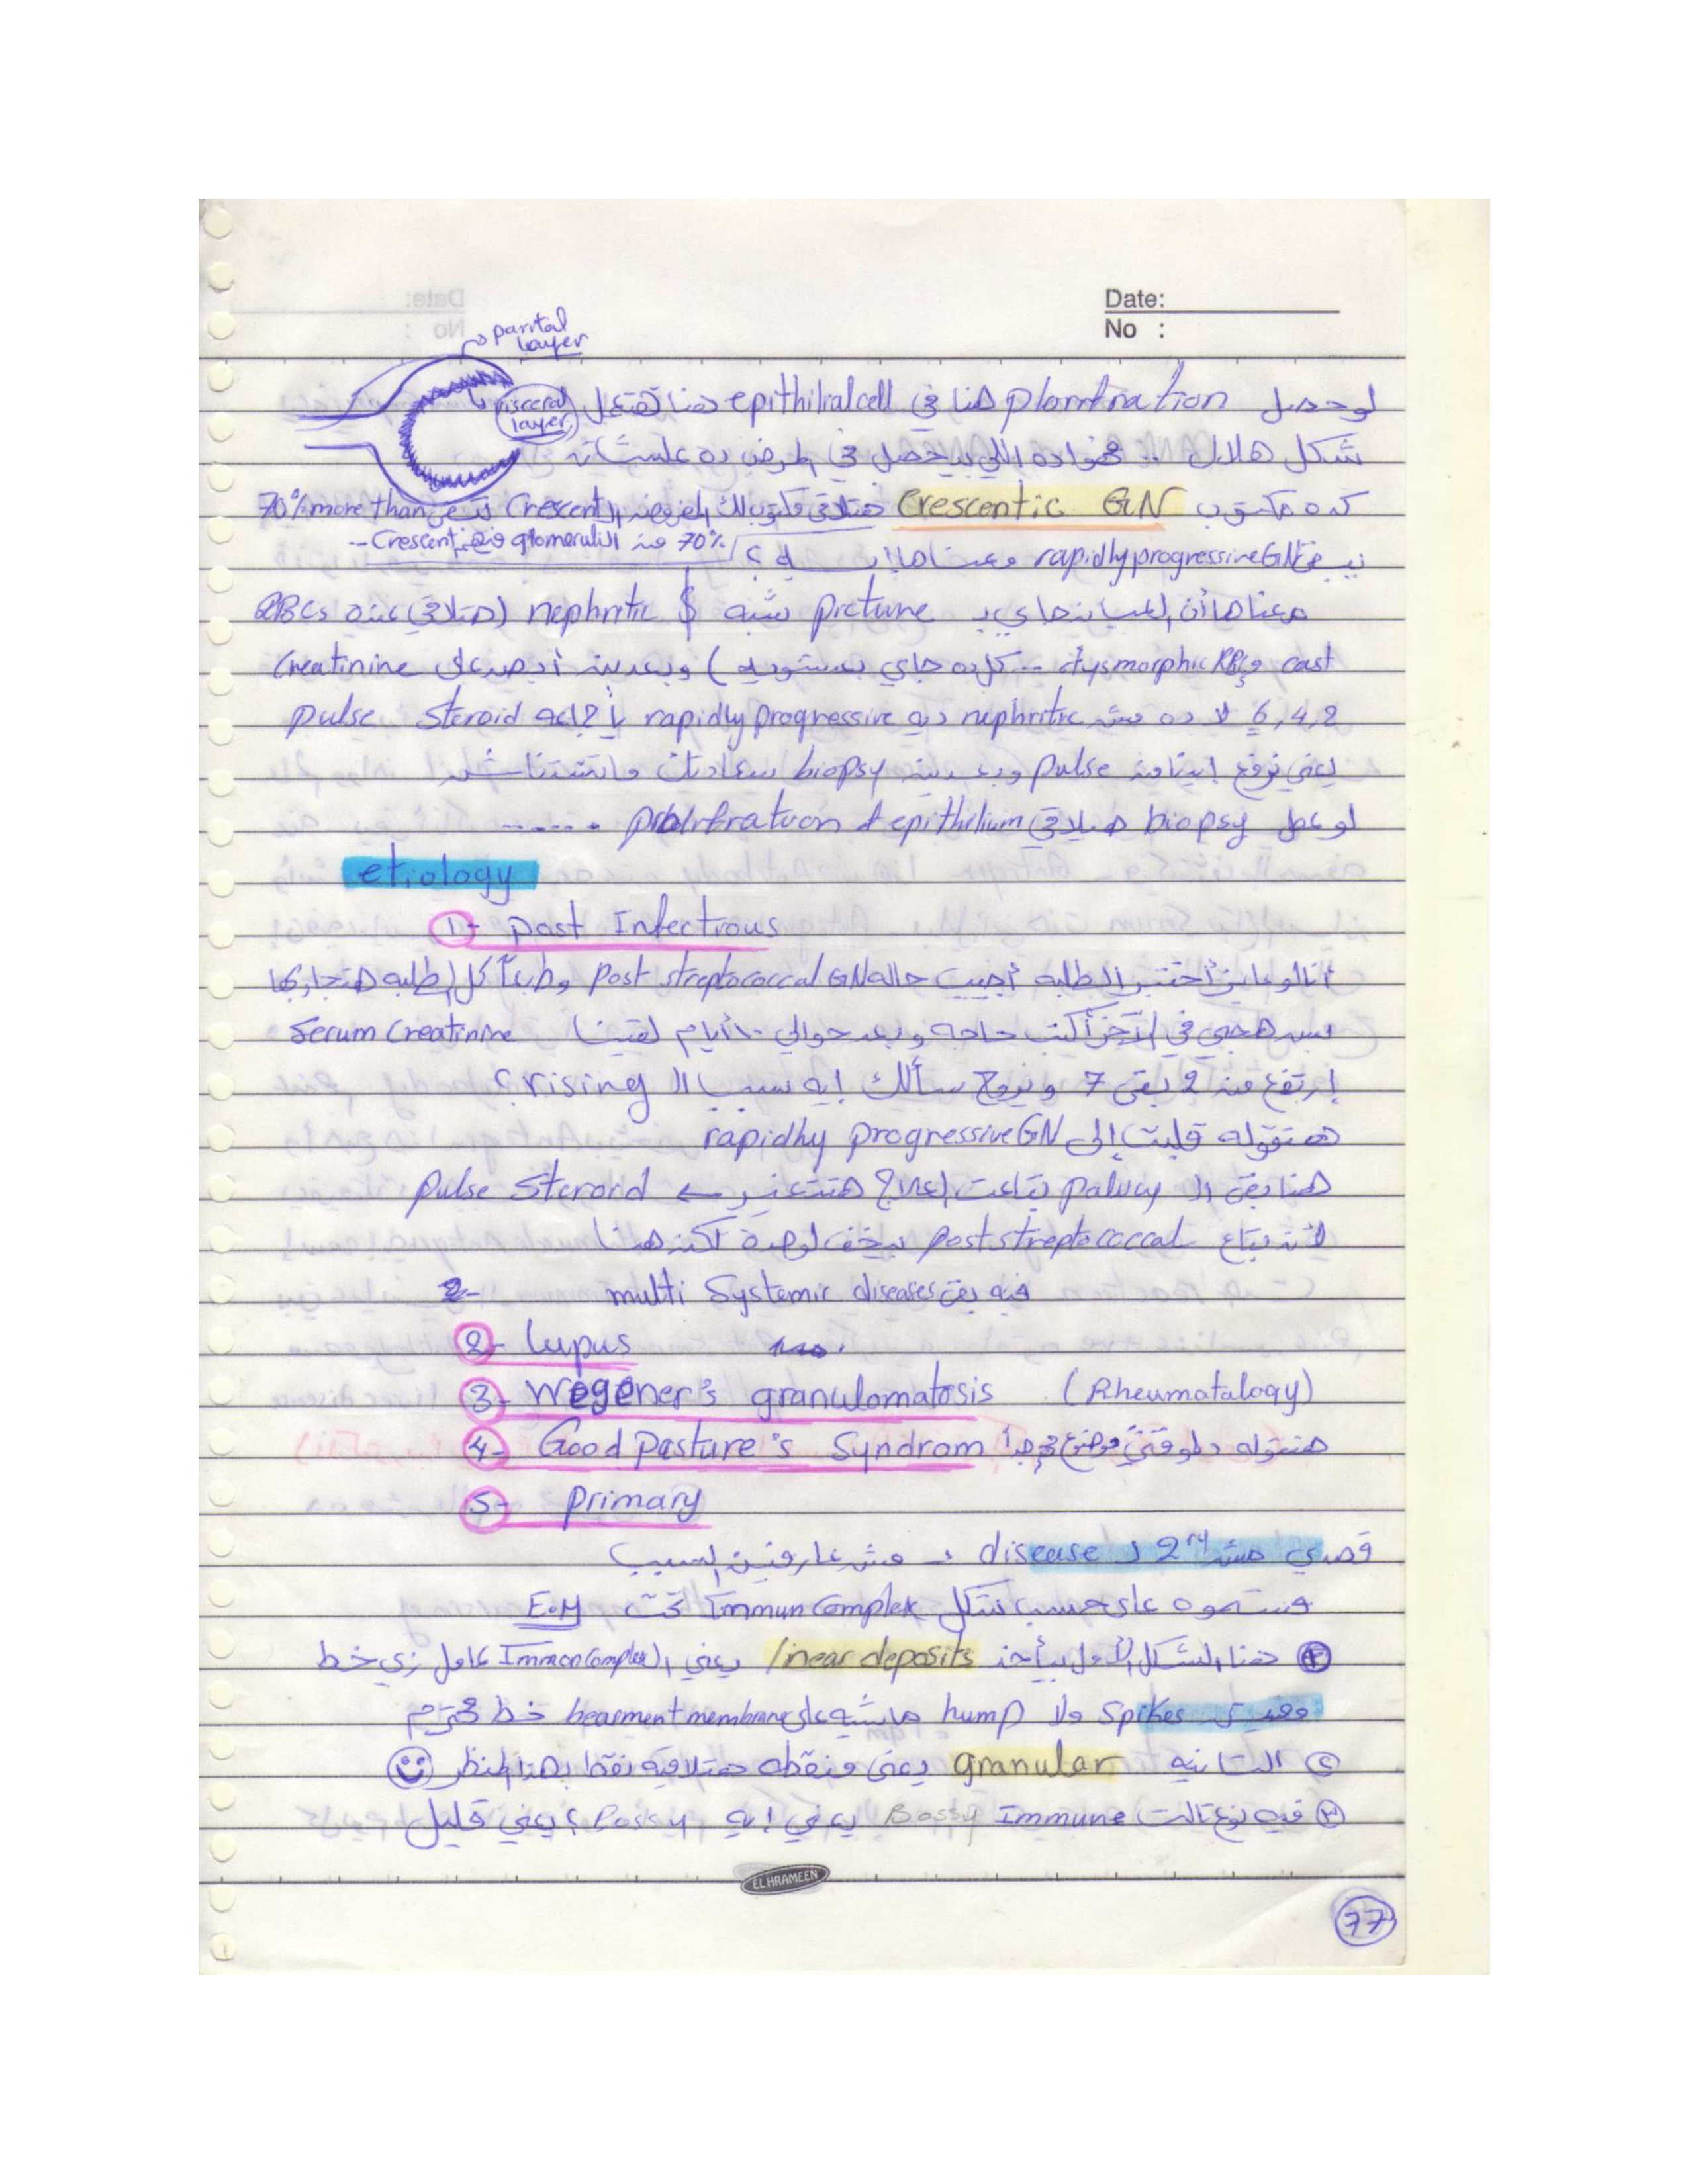 Date:
No :
parital layer
visceral layer
لو حصل plorifration هنا في epithilial cell هنا هتعمل
شكل هلال .. هو ده اللي بيحصل في المرض ده علشانه
كده مكتوب Crescentic GN هتلاقي مكتوبلك المفروض الـ Crescent تبقى more than 70%
70% من الـ glomeruli فيهم Crescent --
نيجي rapidly progressive GN معناها إيه ؟
معناها أن العيان جاي بـ picture شبه $ nephritic (هتلاقي عنده RBCs
cast و dysmorphic RBCs -- كل ده جاي بـ ) وبعدين أبص على Creatinine
2, 4, 6 لا ده مش nephritic ديه rapidly progressive يا جماعه pulse Steroid
يعني نرفع إيدينا من pulse وبعدين biopsy سعادتك ماتستناش
لو عمل biopsy هيلاقي prolifration of epithilium ......
etiology
1- post Infectious
أنا لو عايز أختبر الطلبه أجيب حالة post streptococcal GN وطبعاً كل الطلبه هتجاوبها
بس هجي في الآخر أكتب حاجه وبعد حوالي ١٠ أيام لقينا Serum Creatinine
إرتفع من 2 بقى 7 ونروح سألك إيه سبب الـ rising ؟
هتقوله قلبت إلى rapidly progressive GN
هنا بقى الـ policy بتاعت العلاج هتتغير ← pulse Steroid
لأنه بتاع post streptococcal بيخف لوحده لكن هنا
2- فيه بقى multi Systemic diseases
2- lupus
3- Wegener's granulomatosis (Rheumatology)
4- Good pasture's Syndrom هنقوله دلوقتي موضوع مهم جداً
5- primary
قصدي مش 2ry لـ disease .. مش عارفين السبب
قسموه على حسب شكل Immun Complex تحت E.M
① هنا الشكل الأول بياخد linear deposits يعني الـ Immun Complex عامل زي خط
مفيش Spikes ولا hump ماشيه على beasment membrane خط محترم
② التانيه granular يعني منقطه هتلاقيه نقط بهذا المنظر
③ فيه نوع تالت Bossy Immune يعني إيه Possy ؟ يعني قليل
EL HRAMEEN
77